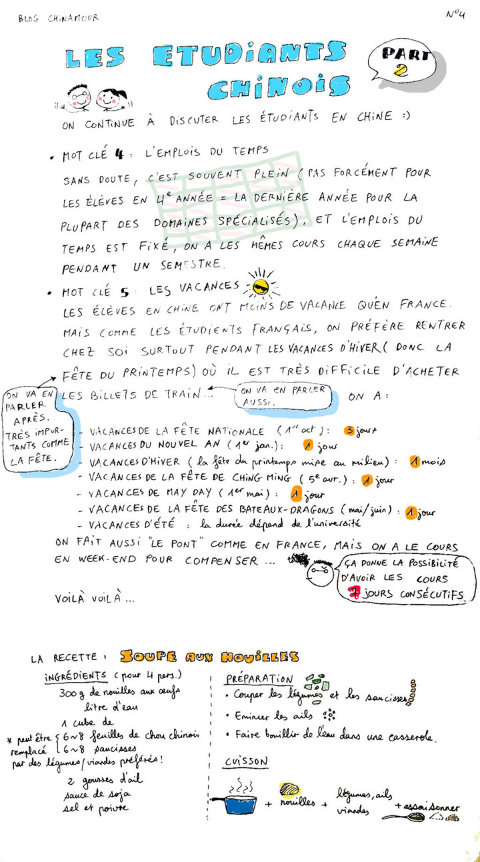 BLOG CHINAMOUR
N°4
LES ETUDIANTS
CHINOIS
PART
2
ON CONTINUE À DISCUTER LES ÉTUDIANTS EN CHINE :)
• MOT CLÉ 4 : L'EMPLOIS DU TEMPS
SANS DOUTE, C'EST SOUVENT PLEIN (PAS FORCÉMENT POUR
LES ÉLÈVES EN 4e ANNÉE = LA DERNIÈRE ANNÉE POUR LA
PLUPART DES DOMAINES SPÉCIALISÉS), ET L'EMPLOIS DU
TEMPS EST FIXÉ, ON A LES MÊMES COURS CHAQUE SEMAINE
PENDANT UN SEMESTRE.
• MOT CLÉ 5 : LES VACANCES
LES ÉLÈVES EN CHINE ONT MOINS DE VACANCE QU'EN FRANCE.
MAIS COMME LES ÉTUDIENTS FRANÇAIS, ON PRÉFÈRE RENTRER
CHEZ SOI SURTOUT PENDANT LES VACANCES D'HIVER (DONC LA
FÊTE DU PRINTEMPS) OÙ IL EST TRÈS DIFFICILE D'ACHETER
LES BILLETS DE TRAIN...
ON VA EN PARLER
AUSSI.
ON A :
ON VA EN
PARLER
APRÈS.
TRÈS IMPOR-
TANTS COMME
LA FÊTE.
- VACANCES DE LA FÊTE NATIONALE (1er oct) : 3 jours
- VACANCES DU NOUVEL AN (1er jan.) : 1 jour
- VACANCES D'HIVER (la fête du printemps mise au milieu) : 1 mois
- VACANCES DE LA FÊTE DE CHING MING (5e avr.) : 1 jour
- VACANCES DE MAY DAY (1er mai) : 1 jour
- VACANCES DE LA FÊTE DES BATEAUX-DRAGONS (mai/juin) : 1 jour
- VACANCES D'ÉTÉ : la durée dépend de l'université
ON FAIT AUSSI "LE PONT" COMME EN FRANCE, MAIS ON A LE COURS
EN WEEK-END POUR COMPENSER ...
ÇA DONNE LA POSSIBILITÉ
D'AVOIR LES COURS
7 JOURS CONSÉCUTIFS.
VOILÀ VOILÀ ...
LA RECETTE : SOUPE AUX NOUILLES
INGRÉDIENTS (pour 4 pers.)
300 g de nouilles aux œufs
litre d'eau
1 cube de
* peut être { 6~8 feuilles de chou chinois
remplacé { 6~8 saucisses
par des légumes/viandes préférés !
2 gousses d'ail
sauce de soja
sel et poivre
PRÉPARATION
• Couper les légumes et les saucisses
• Emincer les ails
• Faire bouillir de l'eau dans une casserole.
CUISSON
+ nouilles + légumes, ails
viandes + assaisonner